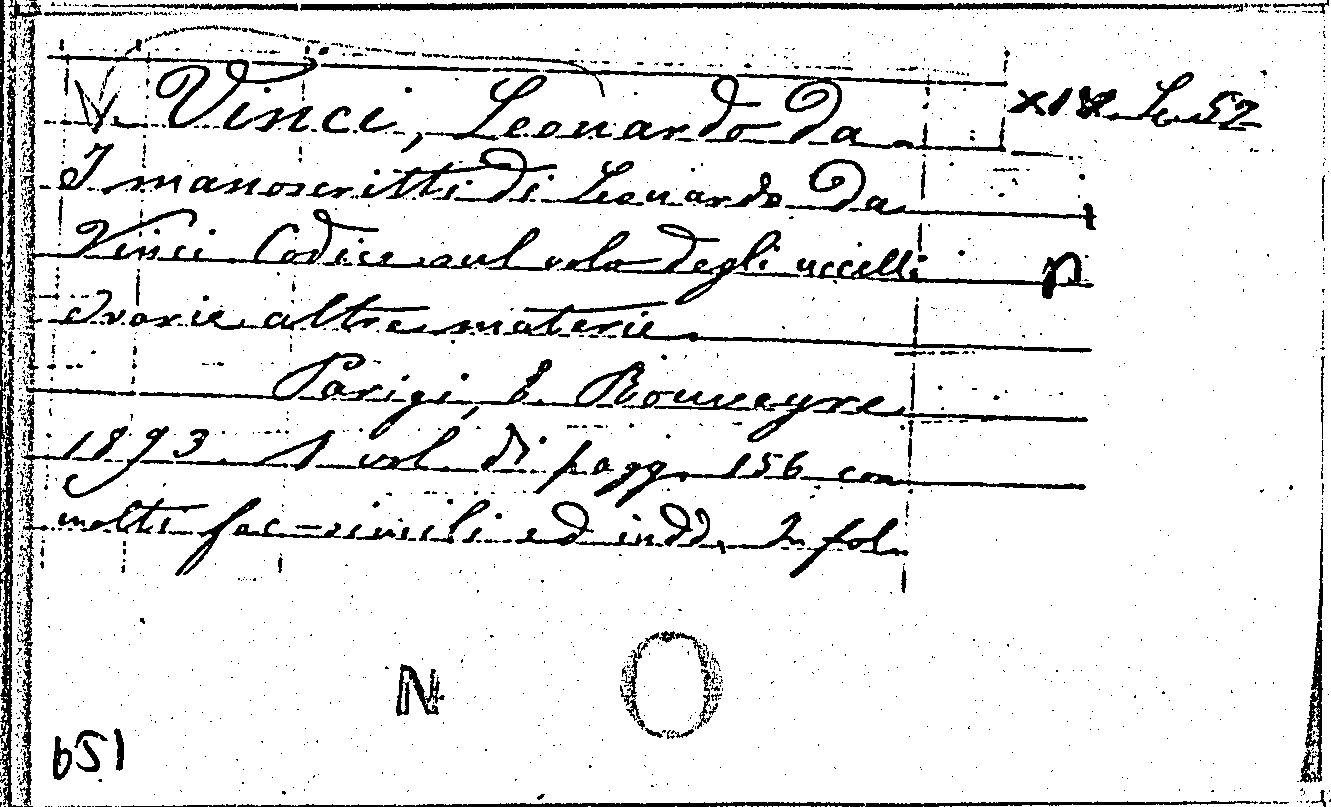 V. Vinci, Leonardo da
I manoscritti di Leonardo da
Vinci. Codice sul volo degli uccelli
e varie altre materie.
Parigi, E. Rouveyre
1893. 1 vol. di pagg. 156 con
molti fac-simili ed indd. In fol.
N O
651